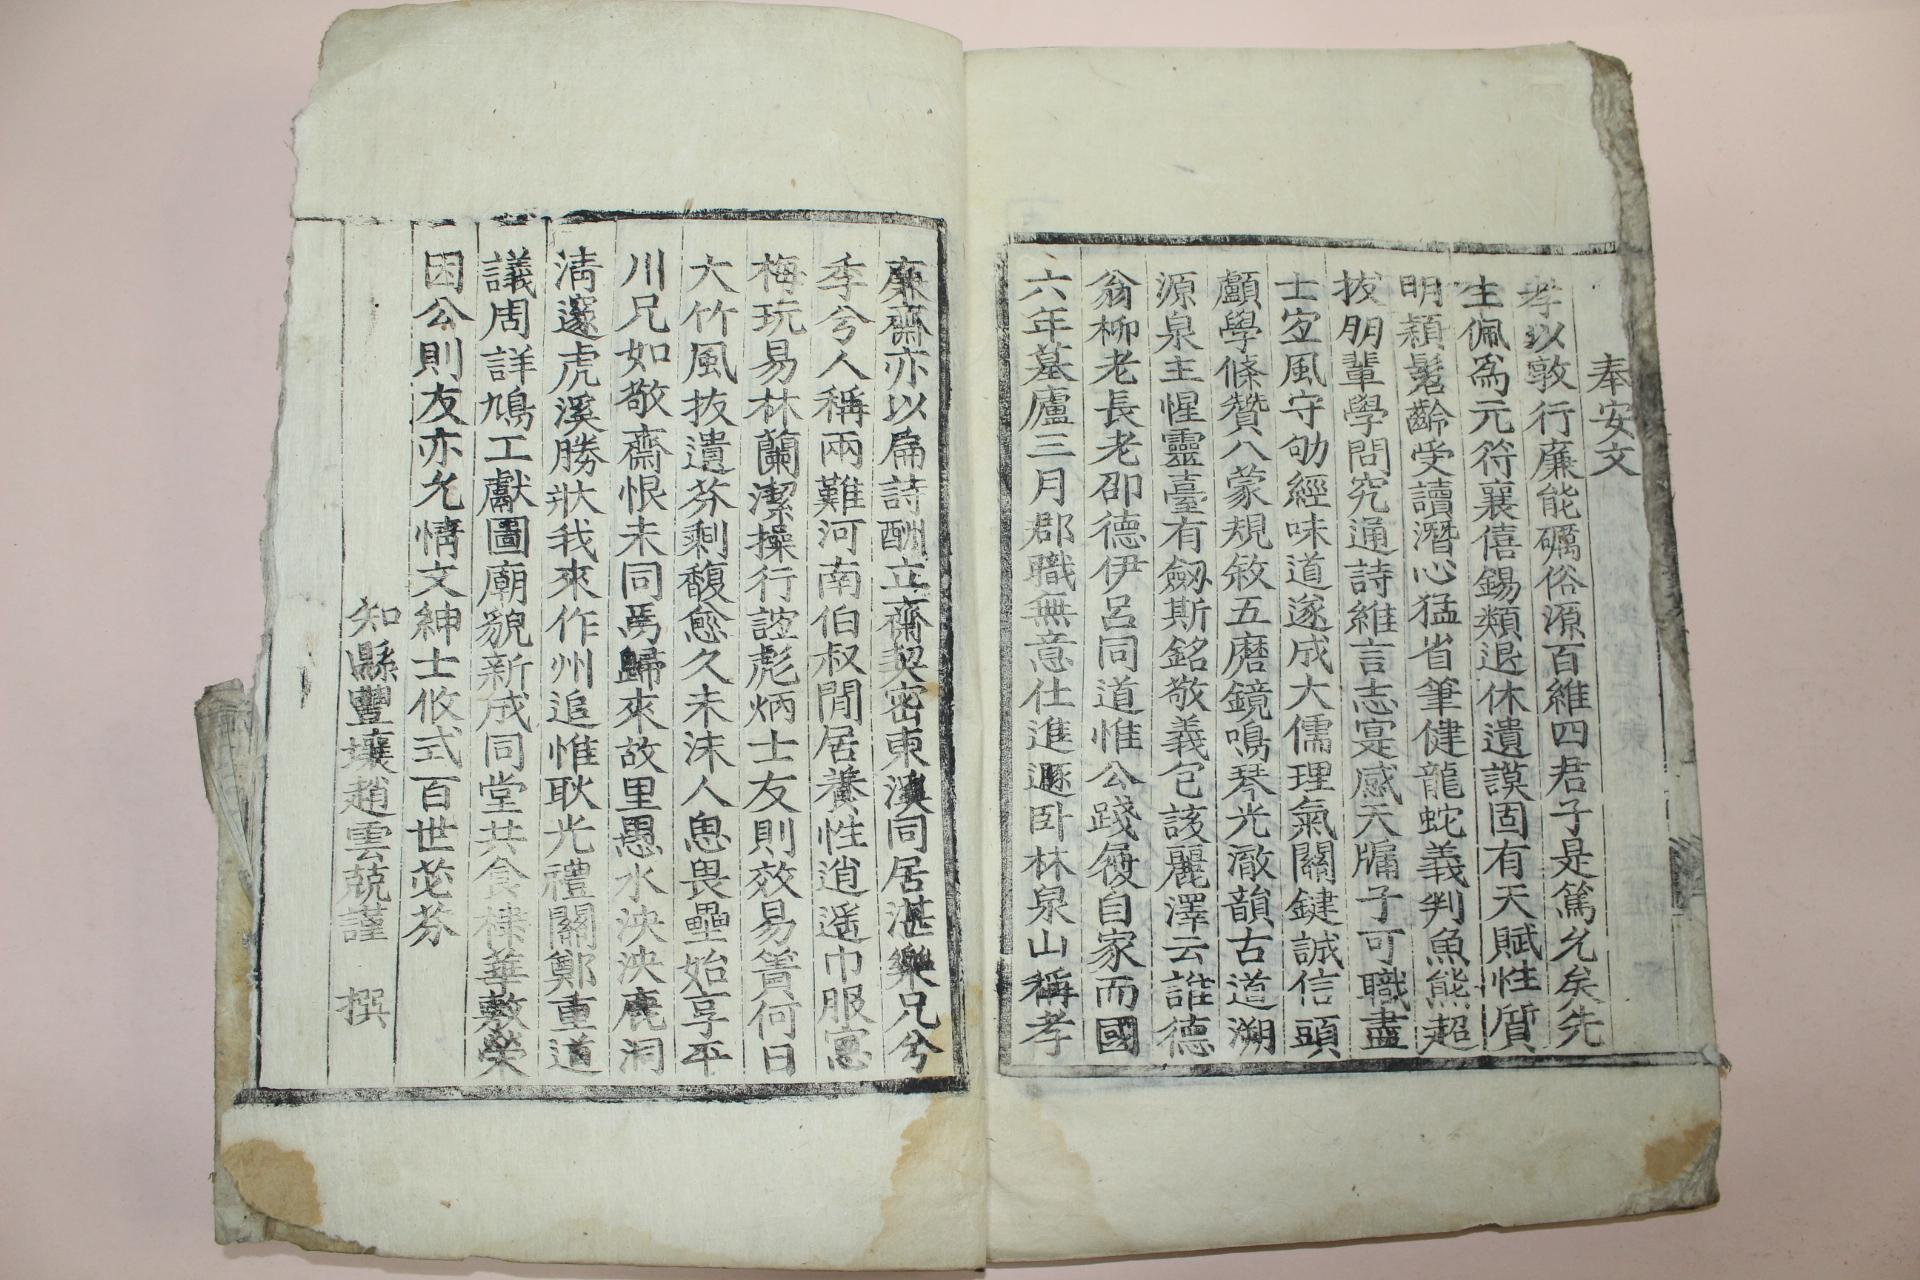 奉安文
孝以敦行廉能礪俗源百維四君子是篤允矣先
生佩爲元符襄僖錫類退休遺謨固有天賦性質
明穎髫齡受讀潛心猛省筆健龍蛇義判魚熊超
拔朋輩學問究通詩維言志寔感天牖子可職盡
士宜風守劬經味道遂成大儒理氣關鍵誠信頭
顱學條贊八蒙規敘五磨鏡鳴琴光澈韻古道溯
源泉主惺靈臺有劒斯銘敬義包該麗澤云誰德
翁柳老長老卲德伊呂同道惟公踐履自家而國
六年墓廬三月郡職無意仕進遯卧林泉山稱孝
廉齋亦以扁詩酬立齋契密東溪同居湛樂兄兮
季兮人稱兩難河南伯叔閒居養性逍遥巾服寓
梅玩易林蘭潔操行誼彪炳士友則效易簀何日
大竹風拔遺芬剩馥愈久未沬人思畏壘始享平
川兄如敬齋恨未同焉歸來故里愚水泱泱鹿洞
淸邃虎溪勝狀我來作州追惟耿光禮關鄭重道
議周詳鳩工獻圖廟貌新成同堂共食棣華敷榮
因公則友亦允情文紳士攸式百世苾芬
知縣豐壤趙雲兢謹 撰